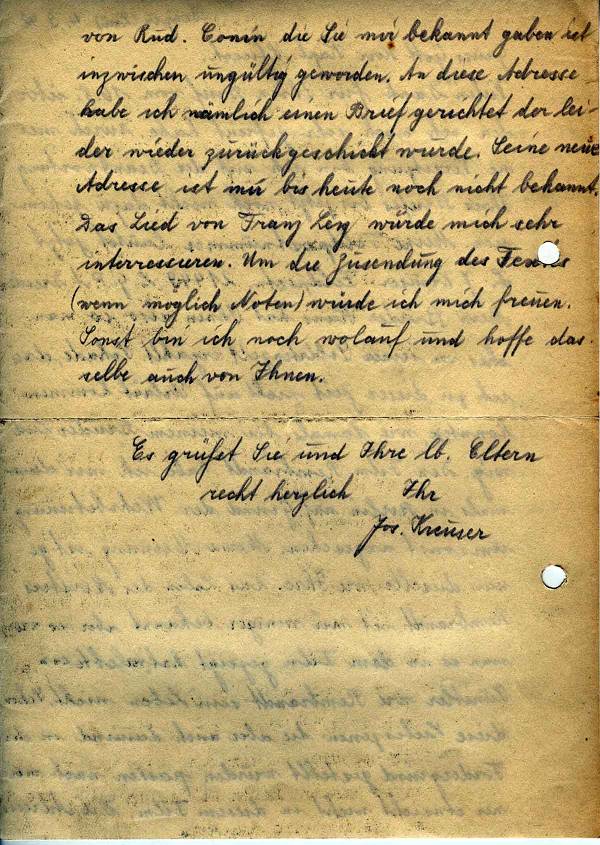 von Rud. Conin die Sie mir bekannt gaben ist
inzwischen ungültig geworden. An diese Adresse
habe ich nämlich einen Brief gerichtet der lei-
der wieder zurückgeschickt wurde. Seine neue
Adresse ist mir bis heute noch nicht bekannt.
Das Lied von Franz Ley würde mich sehr
interressieren. Um die Zusendung des Textes
(wenn moglich Noten) würde ich mich freuen.
Sonst bin ich noch wolauf und hoffe das-
selbe auch von Ihnen.
Es grüßet Sie und Ihre lb. Eltern
recht herzlich Ihr
Jos. Kreuser